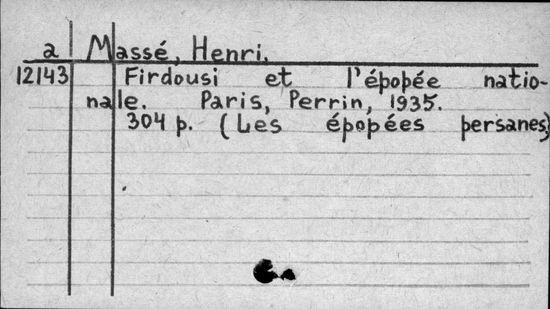 a Massé, Henri.
12143 Firdousi et l'épopée natio-
nale. Paris, Perrin, 1935.
304 p. (Les épopées persanes)